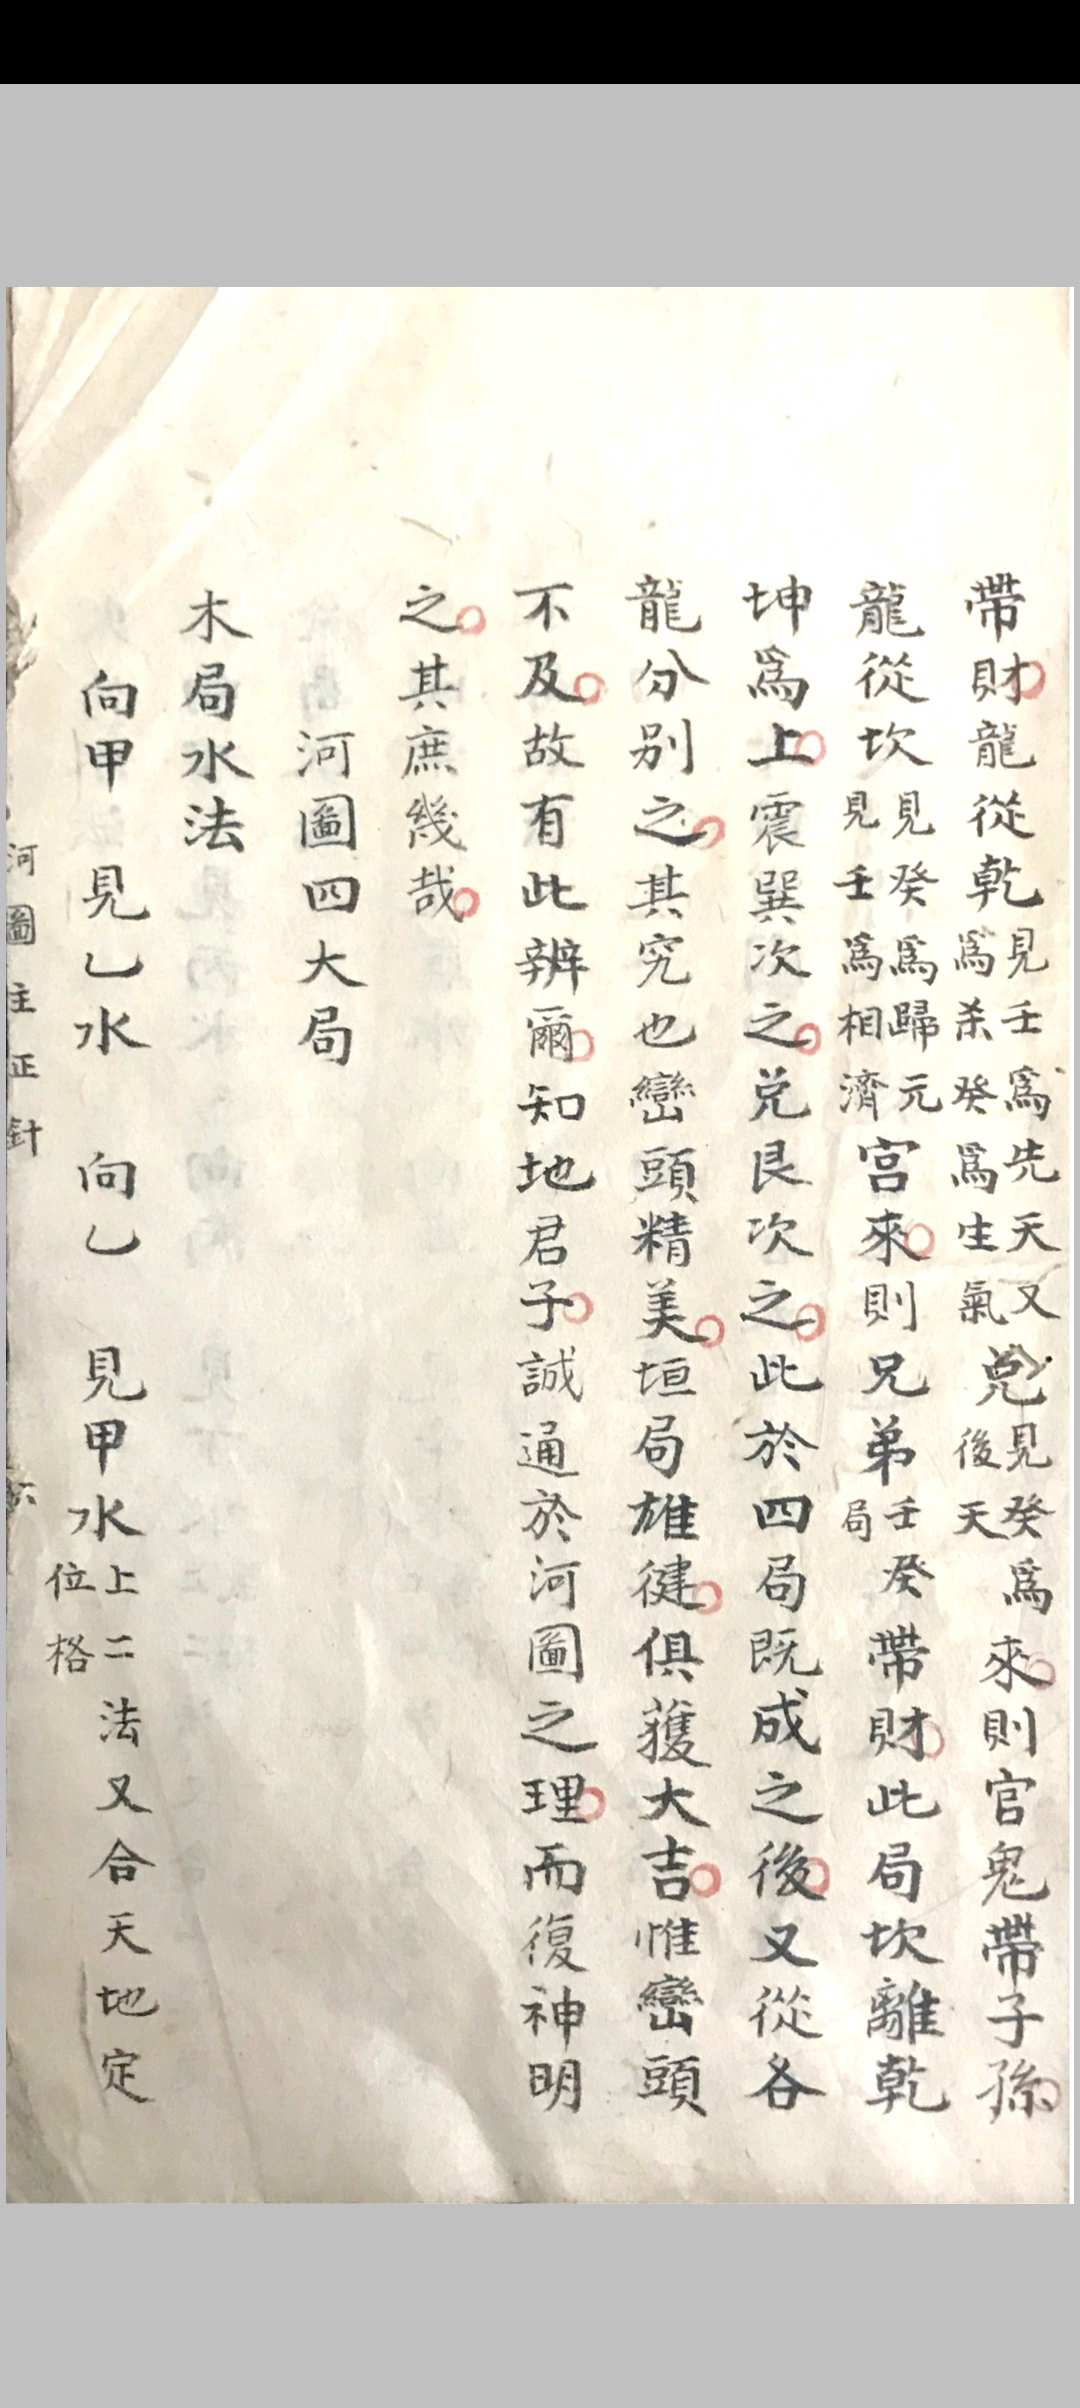 帶財龍從乾見壬爲先天又爲杀癸爲生氣兌見癸後天爲來則官鬼帶子孫
龍從坎見癸爲歸元見壬爲相濟宮來則兄弟壬局癸帶財此局坎離乾
坤爲上震巽次之兌艮次之此於四局既成之後又從各
龍分別之其究也巒頭精美垣局雄健俱獲大吉惟巒頭
不及故有此辨爾知地君子誠通於河圖之理而復神明
之其庶幾哉
河圖四大局
木局水法
向甲見乙水 向乙 見甲水上二位格法又合天地定
河圖主正針 六